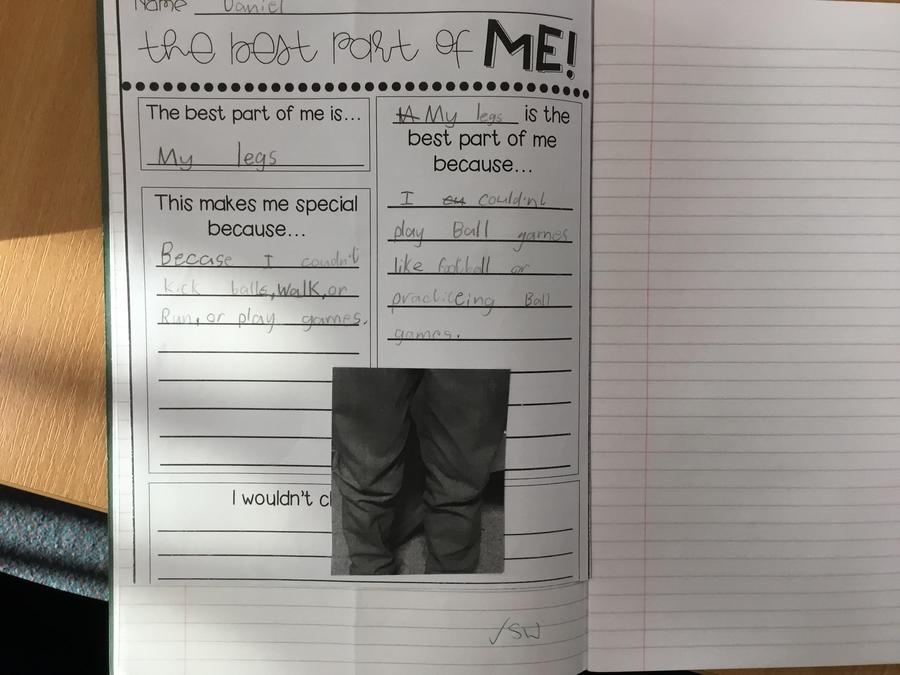 Name Daniel
the best part of ME!
The best part of me is...
My legs
This makes me special
because...
Becase I coudn't
kick balls, walk, or
Run, or play games.
My legs is the
best part of me
because...
I couldn't
play Ball games
like football or
practiceing Ball
games.
I wouldn't
✓SW